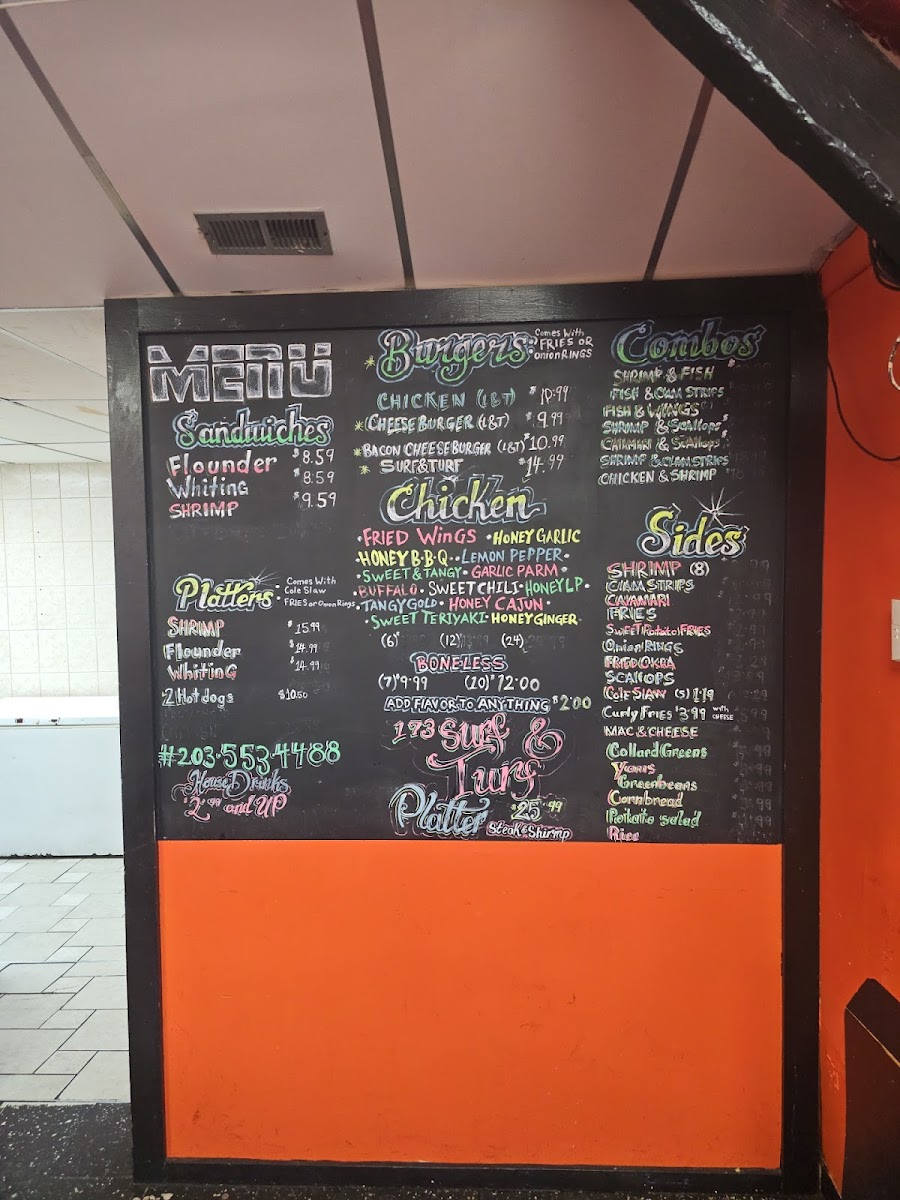 MENU
Sandwiches
Flounder $8.59
Whiting $8.59
SHRIMP $9.59
Platters
- Comes With
Cole Slaw
FRIES or Onion Rings
SHRIMP $15.99
Flounder $14.99
Whiting $14.99
2 Hot dogs $10.50
#203.553.4488
House Drinks
2.99 and UP
* Burgers:
Comes With
FRIES OR
Onion RINGS
CHICKEN (L&T) $10.99
* CHEESE BURGER (L&T) $9.99
* BACON CHEESE BURGER (L&T) $10.99
* SURF & TURF $14.99
Chicken
• FRIED WiNGS • HONEY GARLIC
HONEY B•B•Q • LEMON PEPPER •
• SWEET & TANGY • GARLIC PARM •
• BUFFALO • SWEET CHILI • HONEY LP •
• TANGY GOLD • HONEY CAJUN •
• SWEET TERIYAKI • HONEY GINGER •
(6) (12) (24)
BONELESS
(7) $9.99 (10) $12.00
ADD FLAVOR TO ANYTHING $2.00
173 Surf &
Turf
Platter $25.99
Steak & Shirmp
Combos
SHRIMP & FISH
FISH & CLAM STRIPS
FISH & WINGS
SHRIMP & Scallops
CALAMARI & Scallops
SHRIMP & CLAM STRIPS
CHICKEN & SHRIMP
Sides
SHRIMP (8)
CLAM STRIPS
CALAMARI
FRIES
SWEET Potato FRIES
Onion RINGS
FRIED OKRA
SCALLOPS
Cole SLAW (S) 1.19
Curly FRIES $3.99 with CHEESE
MAC & CHEESE
Collard Greens
Yams
Greenbeans
Cornbread
Potato salad
Rice